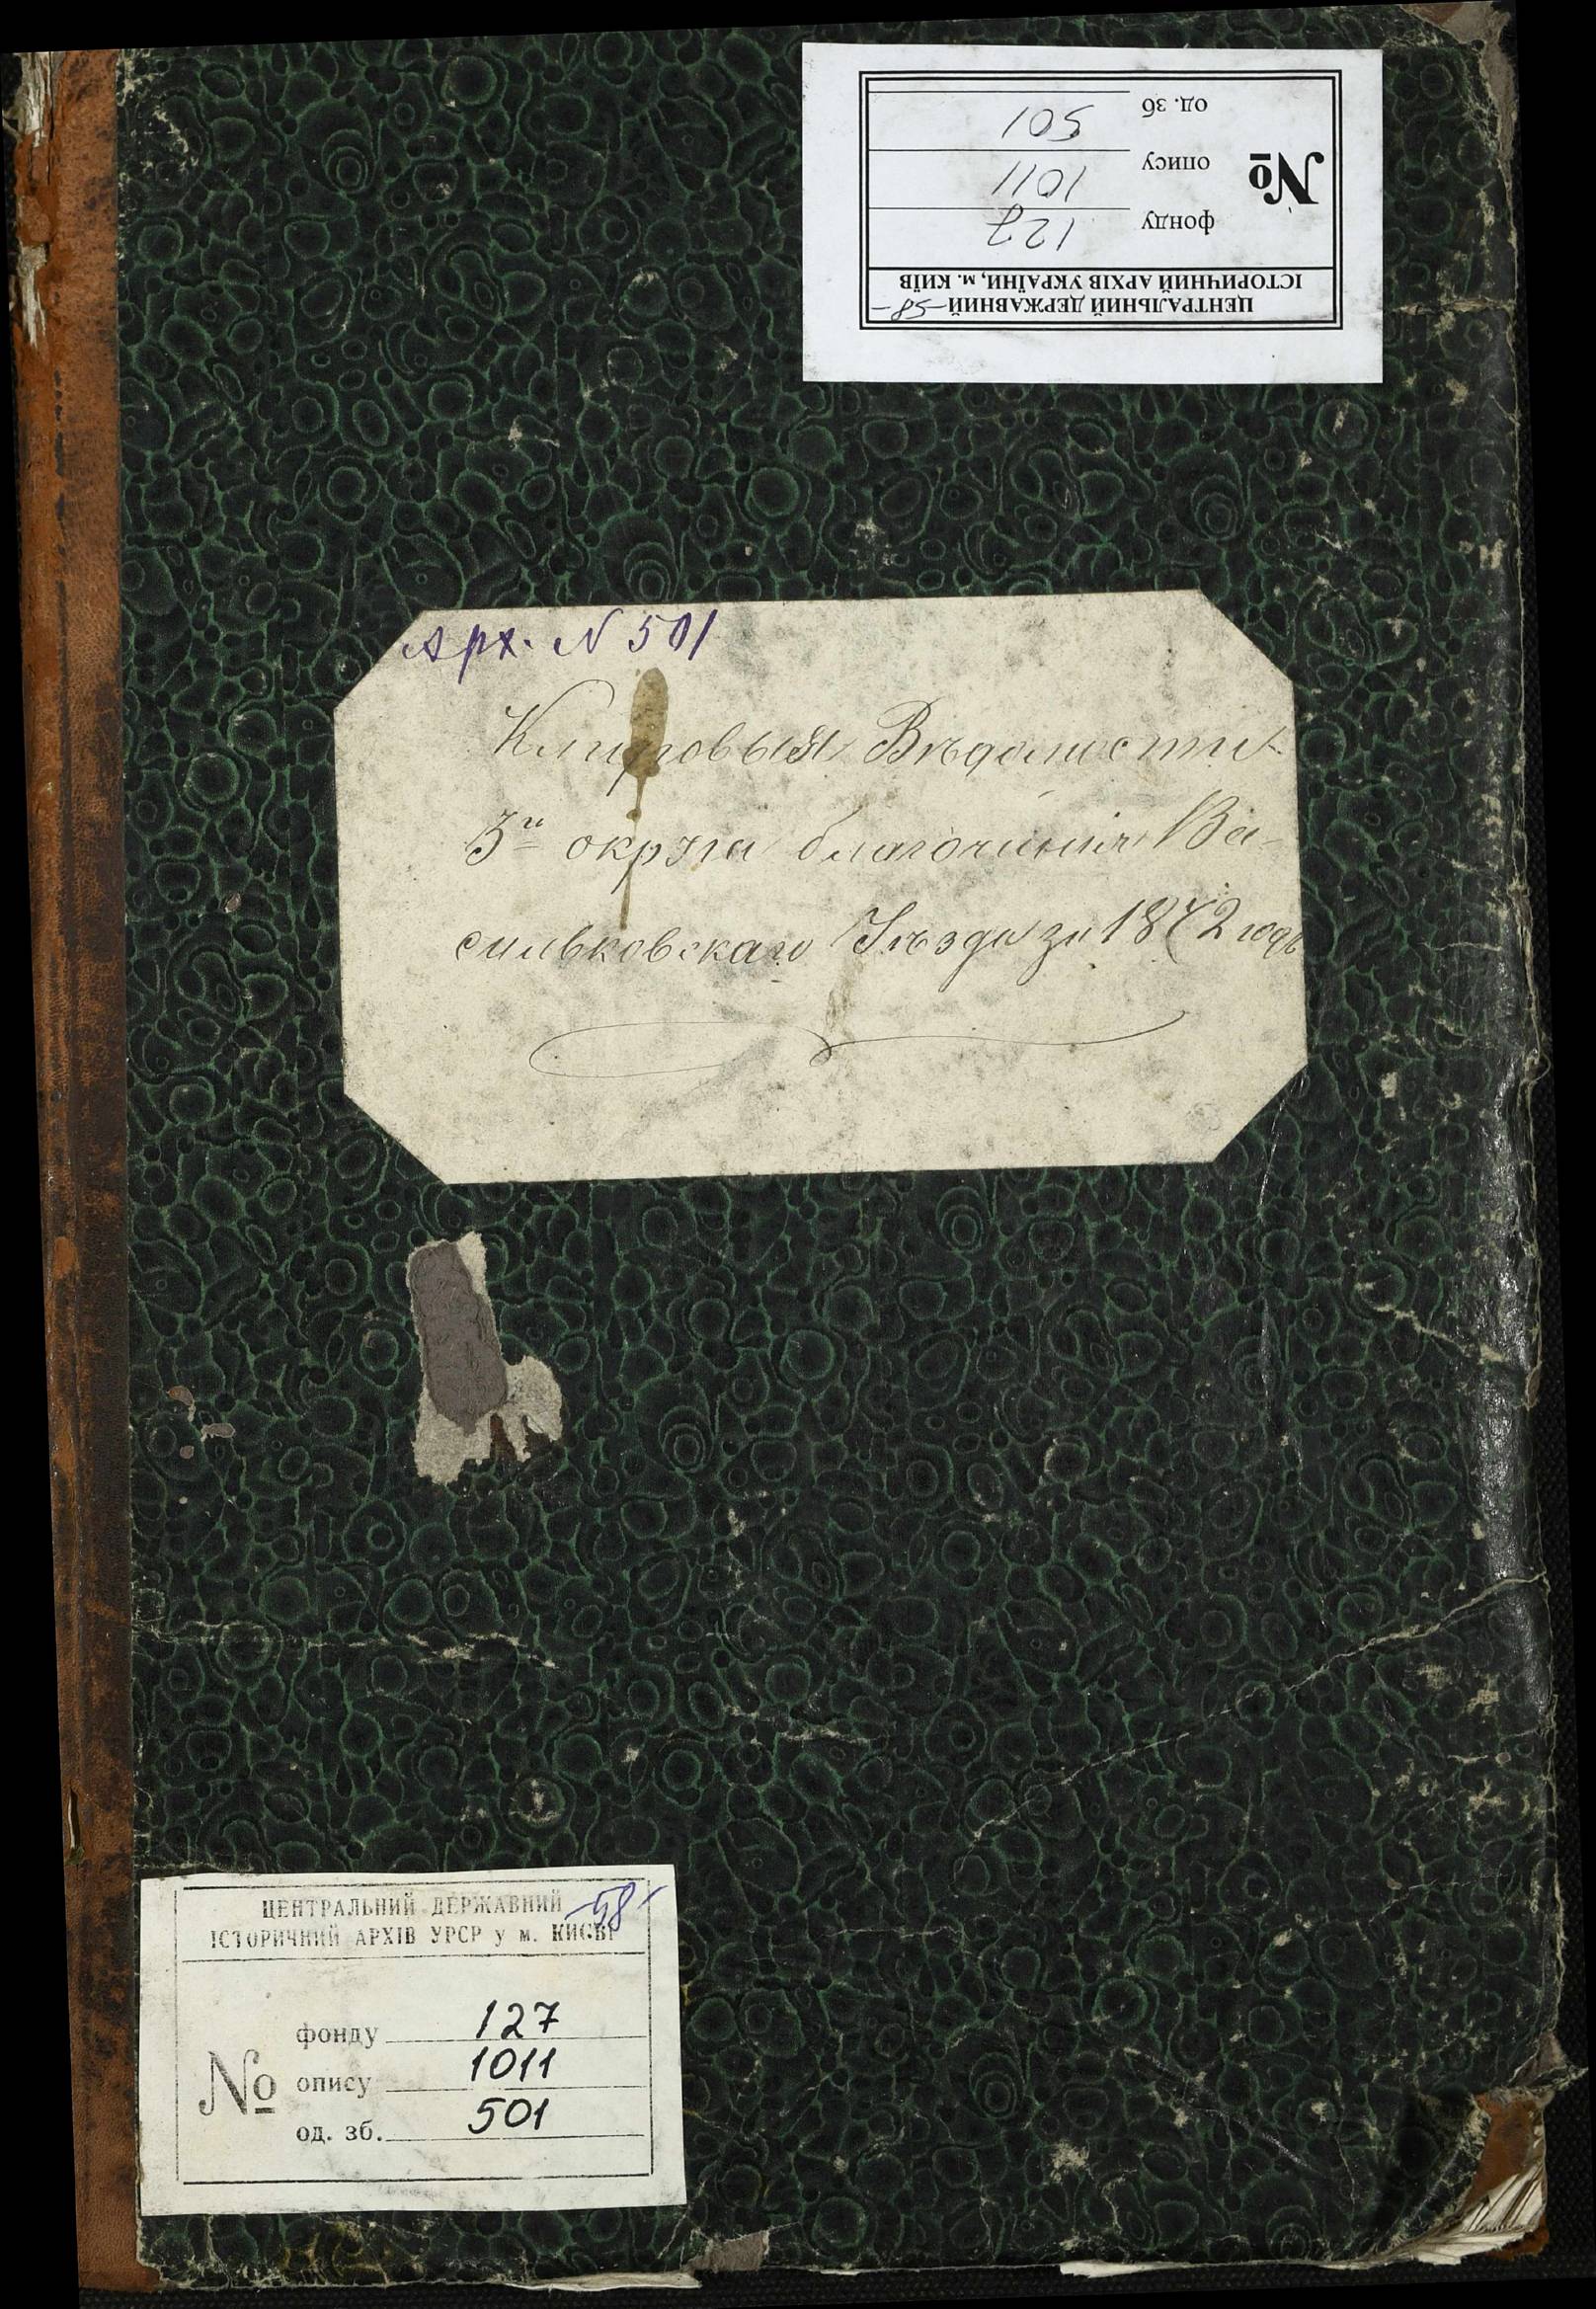 ЦЕНТРАЛЬНИЙ ДЕРЖАВНИЙ -58-
ІСТОРИЧНИЙ АРХІВ УКРАЇНИ, м. КИЇВ
№
фонду 127
опису 1011
од. зб 501
Арх. N 501
Клировыя Вѣдомости
3го округа благочинія Ва-
сильковскаго Уѣзда за 1872 годъ
ЦЕНТРАЛЬНИЙ ДЕРЖАВНИЙ -58-
ІСТОРИЧНИЙ АРХІВ УРСР у м. КИЄВІ
№
фонду 127
опису 1011
од. зб. 501